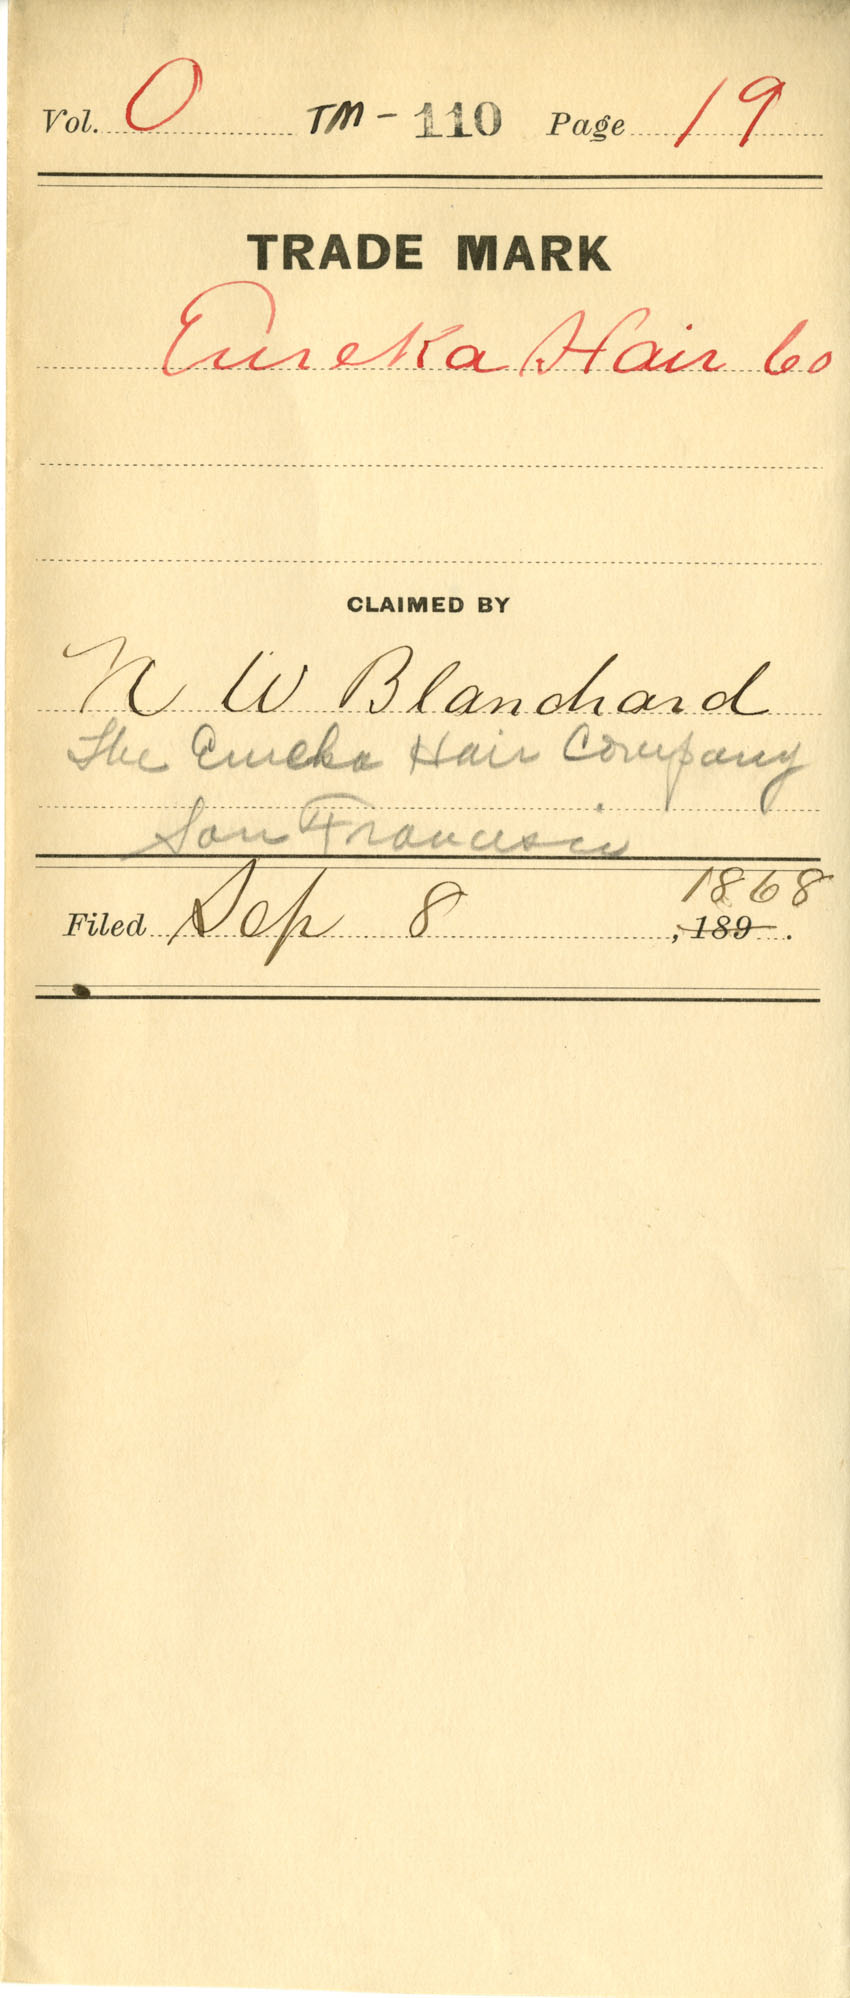 Vol. O TM-110 Page 19
TRADE MARK
Eureka Hair Co
CLAIMED BY
N W Blanchard
The Eureka Hair Company
San Francisco
1868
Filed Sep 8, 189 .